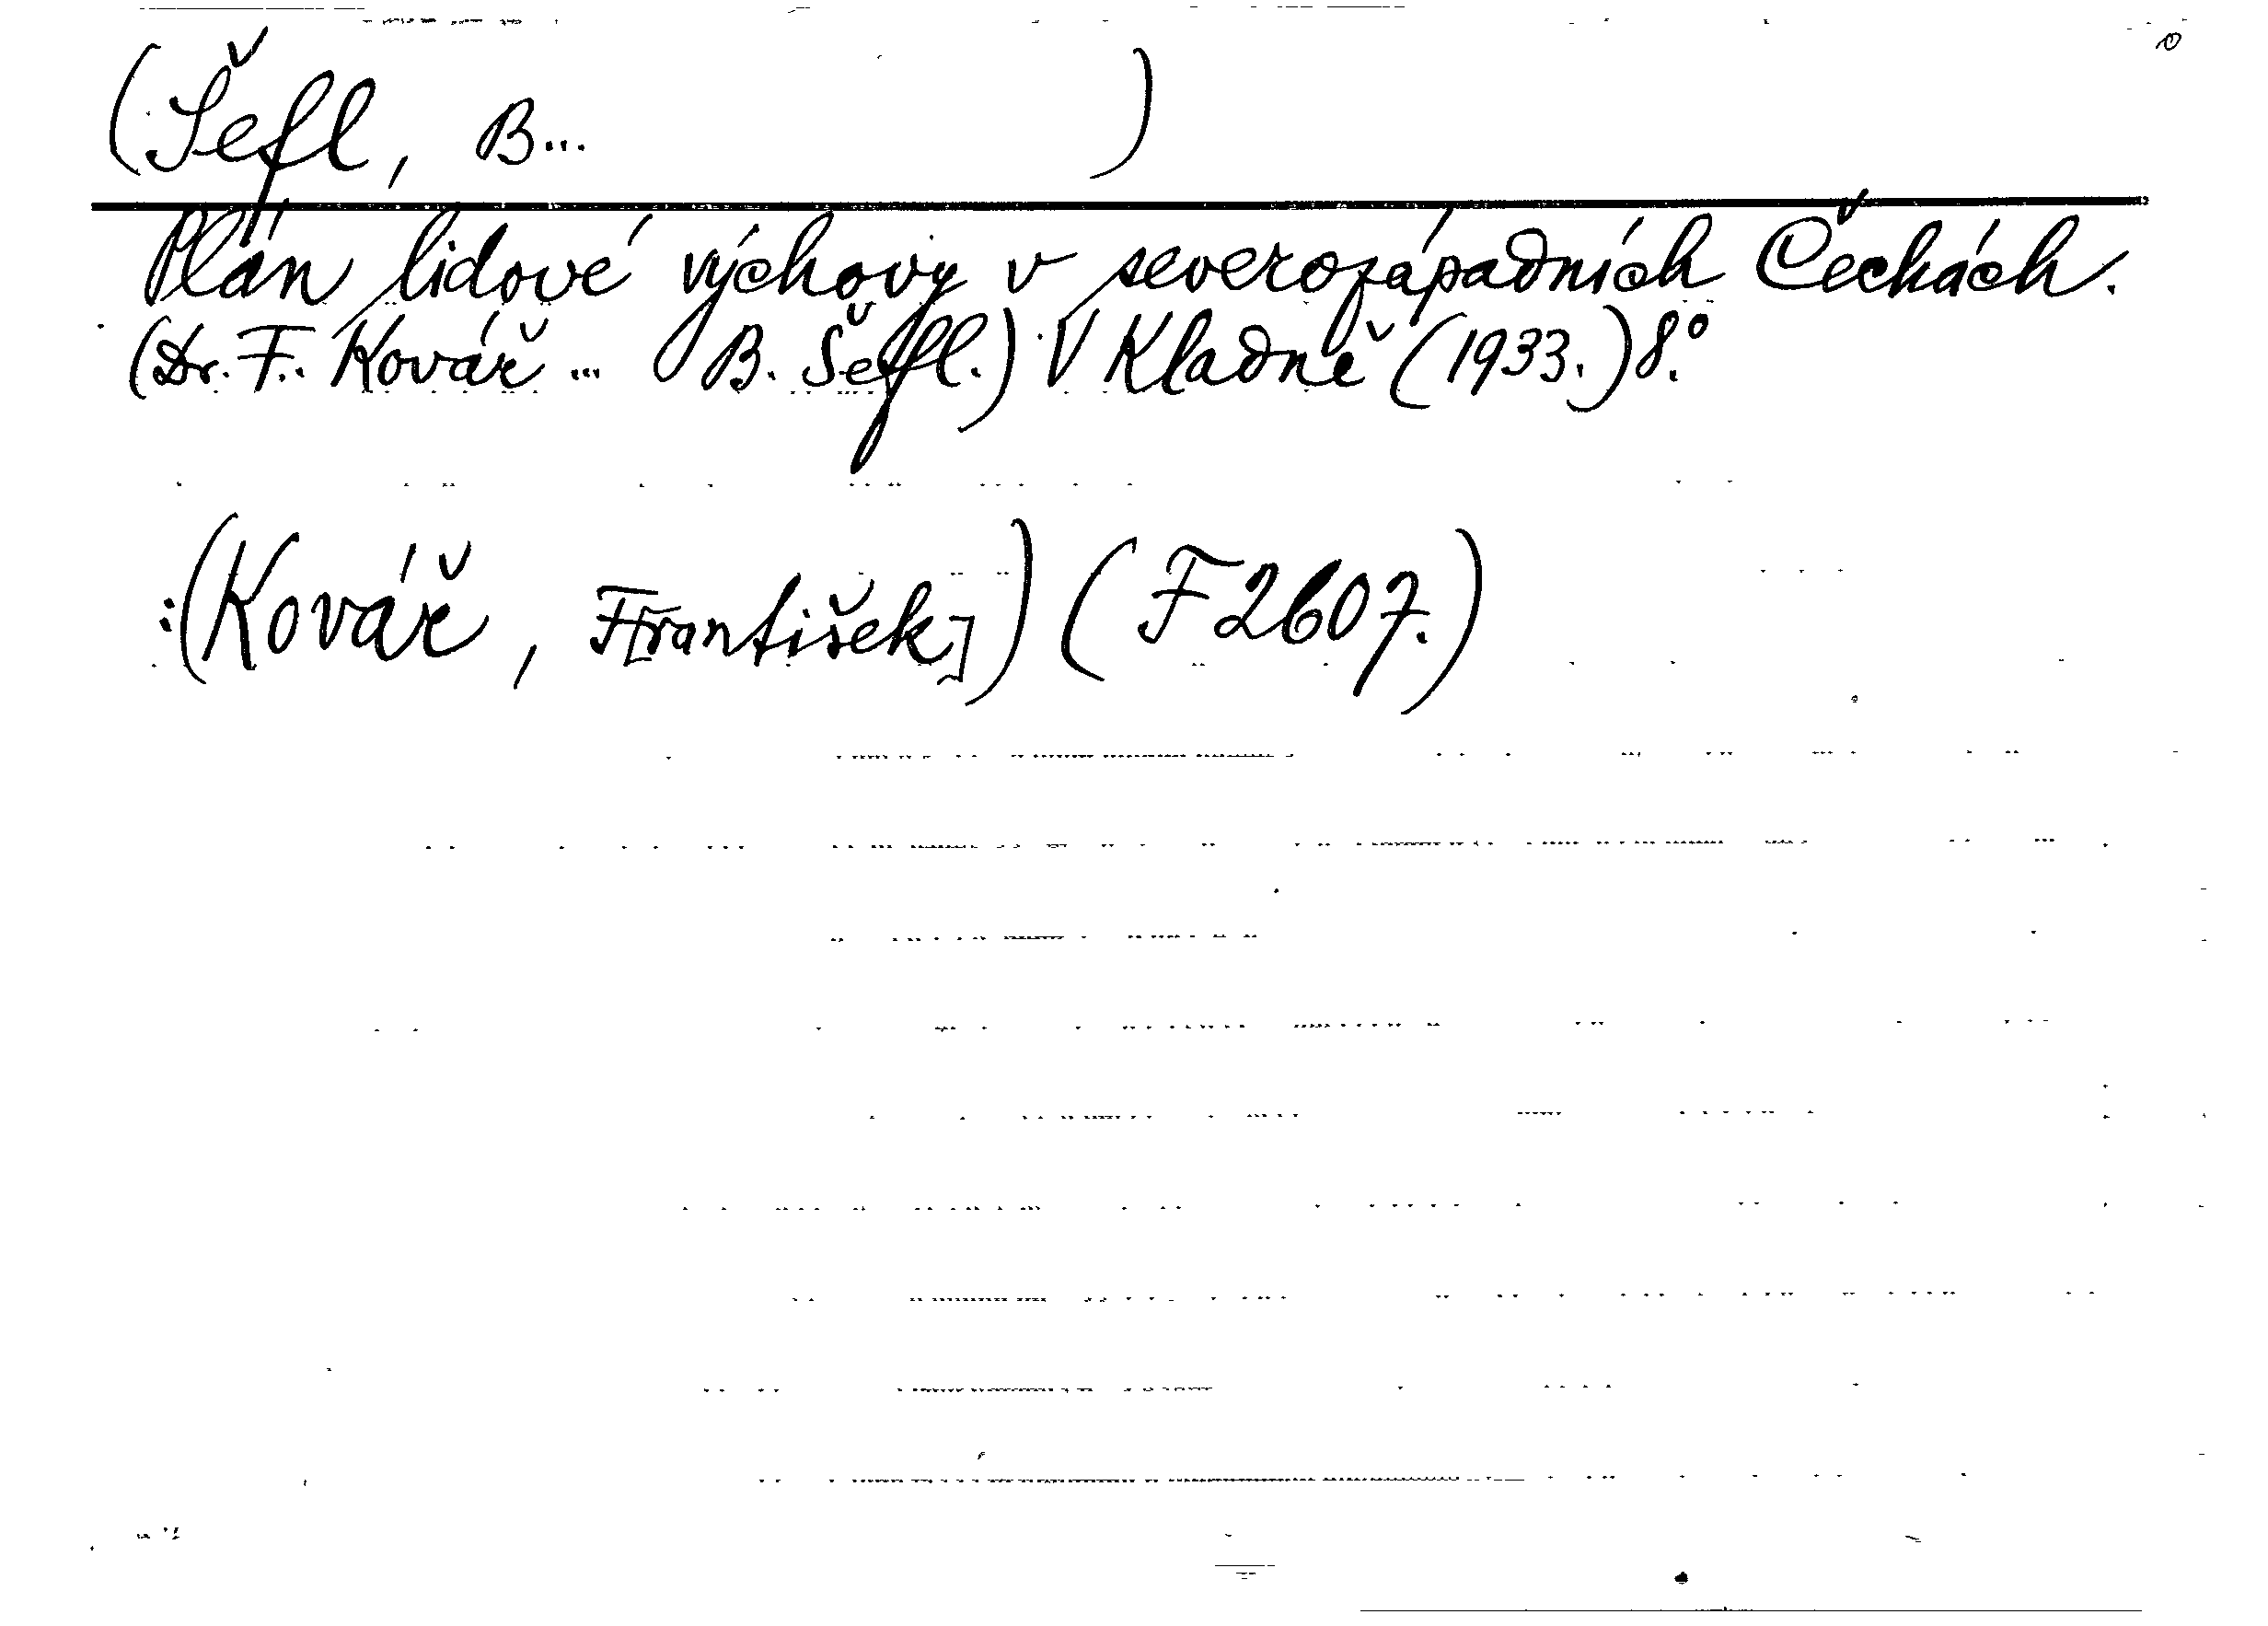 (Šefl, B... )
Plán lidové výchovy v severozápadních Čechách.
(Dr. F. Kovář ... B. Šefl.) V Kladně (1933.) 8.°
:(Kovář, F[rantišek]) (F 2607.)